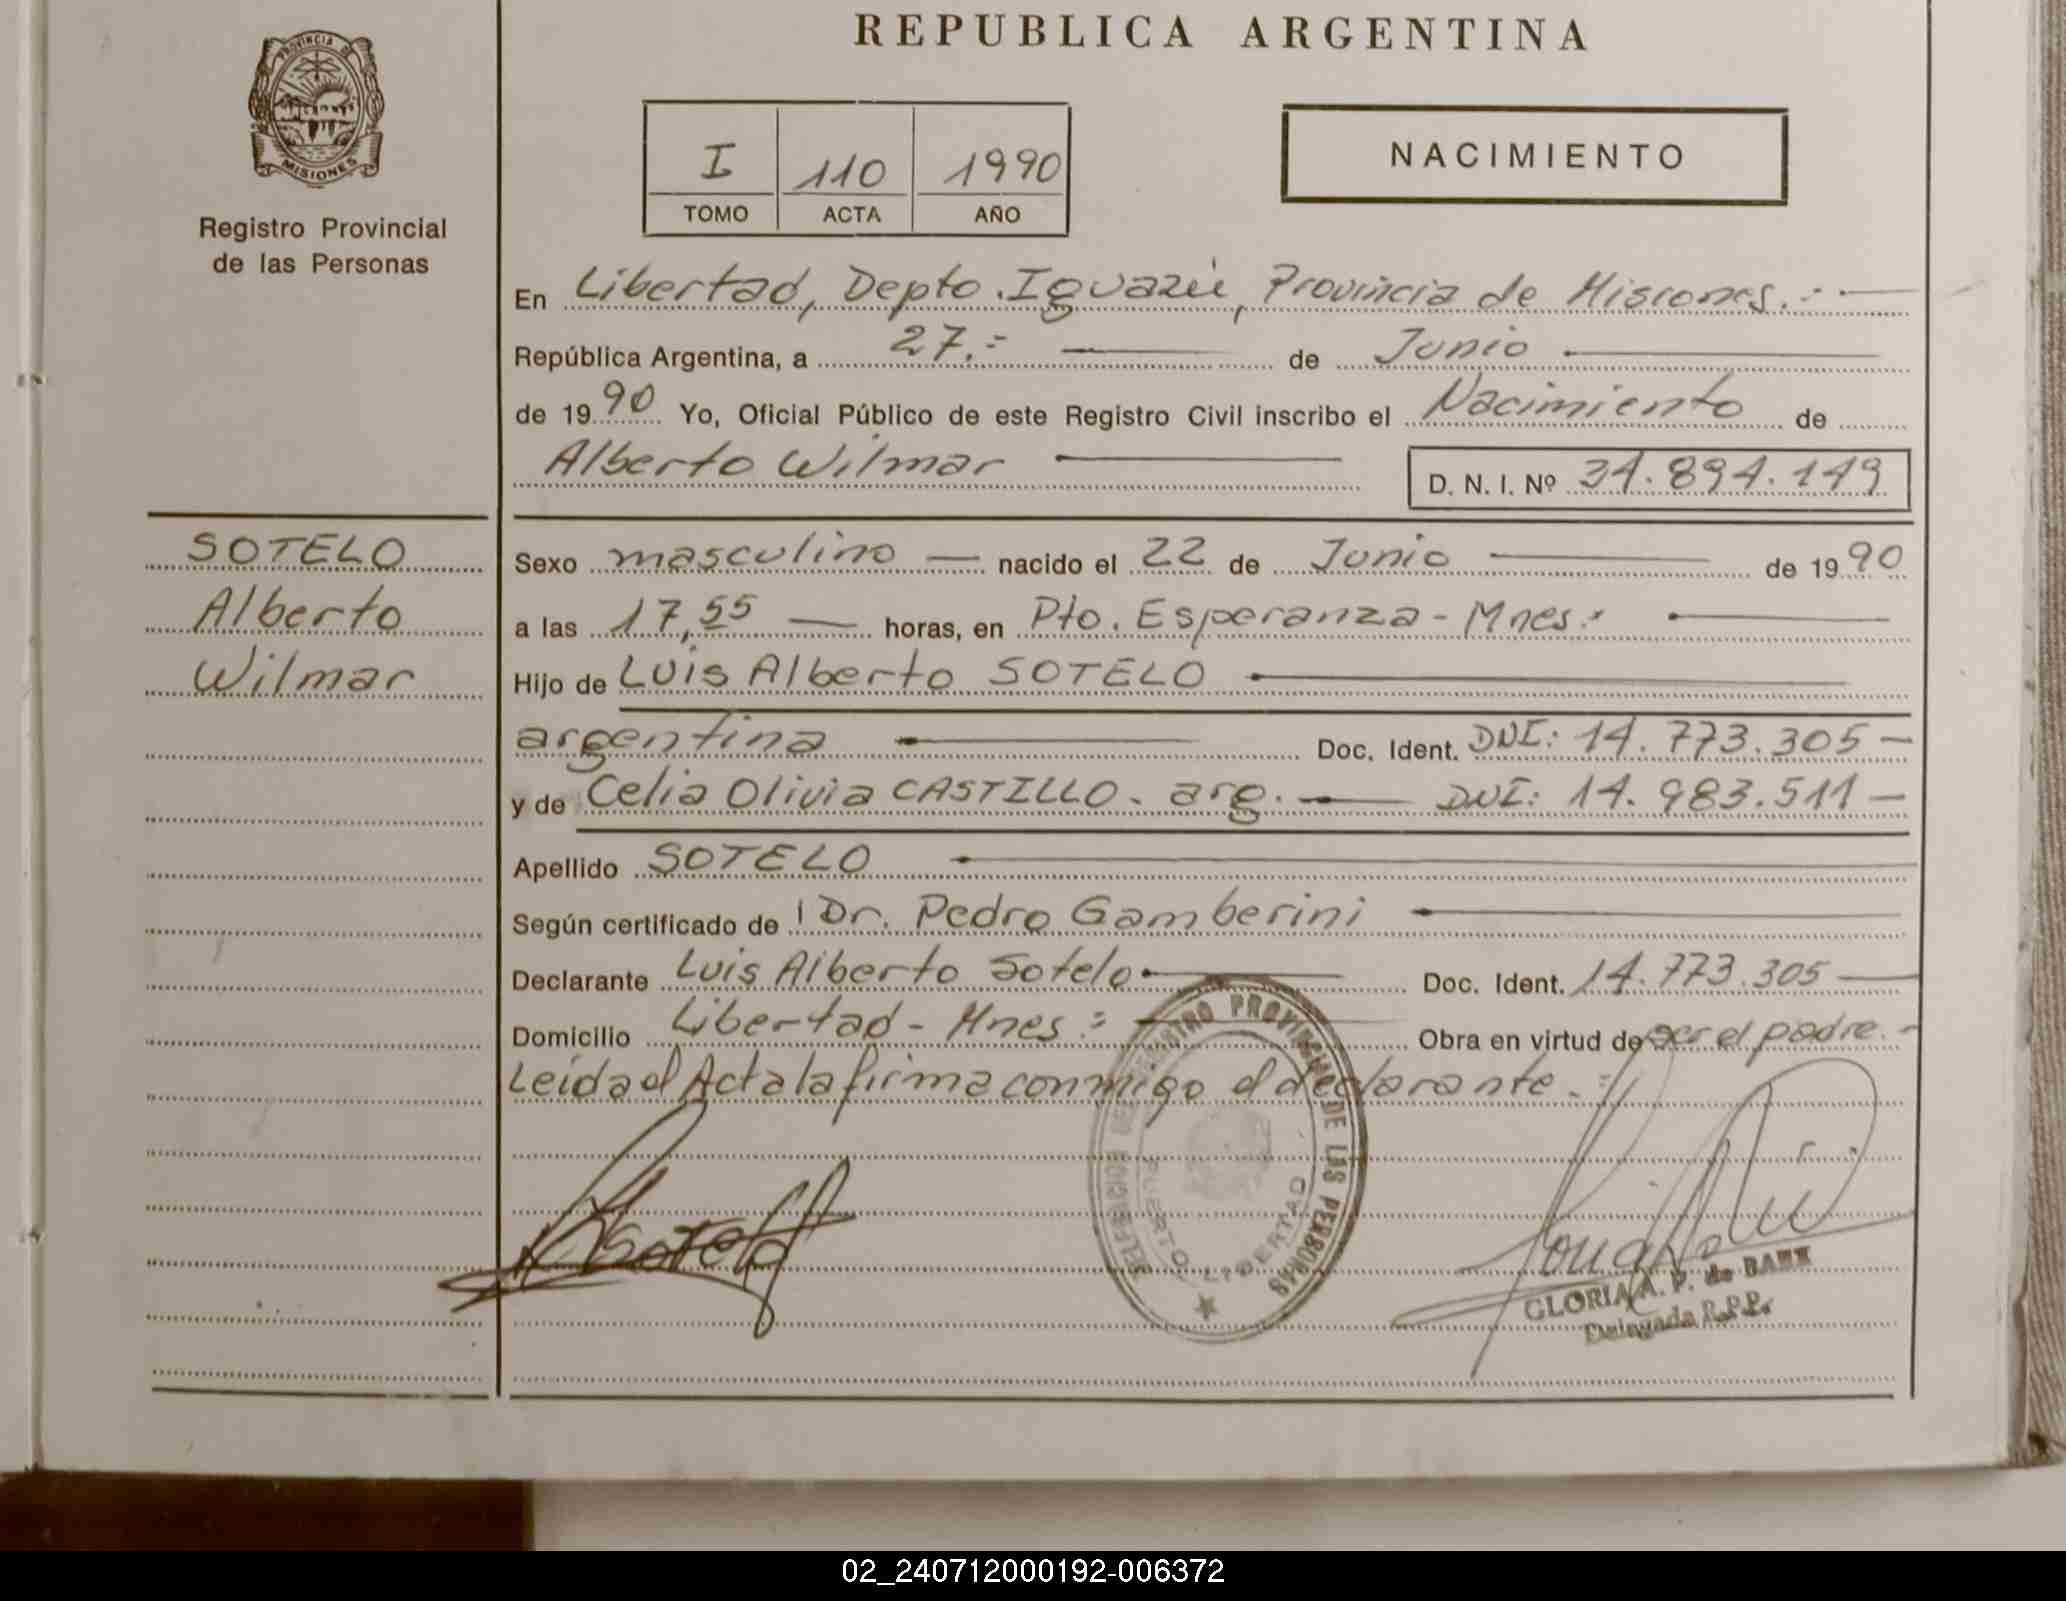 REPUBLICA ARGENTINA
PROVINCIA DE
MISIONES
Registro Provincial
de las Personas
I 110 1990
TOMO ACTA AÑO
NACIMIENTO
En Libertad, Depto. Iguazú, Provincia de Misiones.-
República Argentina, a 27.- de Junio
de 1990 Yo, Oficial Público de este Registro Civil inscribo el Nacimiento de
Alberto Wilmar D. N. I. Nº 34.894.149
SOTELO
Alberto
Wilmar
Sexo masculino nacido el 22 de Junio de 1990
a las 17,55 horas, en Pto. Esperanza - Mnes.
Hijo de Luis Alberto SOTELO
argentina Doc. Ident. DNI: 14.773.305 -
y de Celia Olivia CASTILLO - arg. - DNI: 14.983.511 -
Apellido SOTELO
Según certificado de Dr. Pedro Gamberini
Declarante Luis Alberto Sotelo Doc. Ident. 14.773.305
Domicilio Libertad - Mnes Obra en virtud de ser el padre.-
Leída el Acta la firma conmigo el declarante.-
Sotelo
REGISTRO PROVINCIAL DE LAS PERSONAS
PUERTO LIBERTAD
GLORIA A. P. de
Delegada R.P.P.
02_240712000192-006372